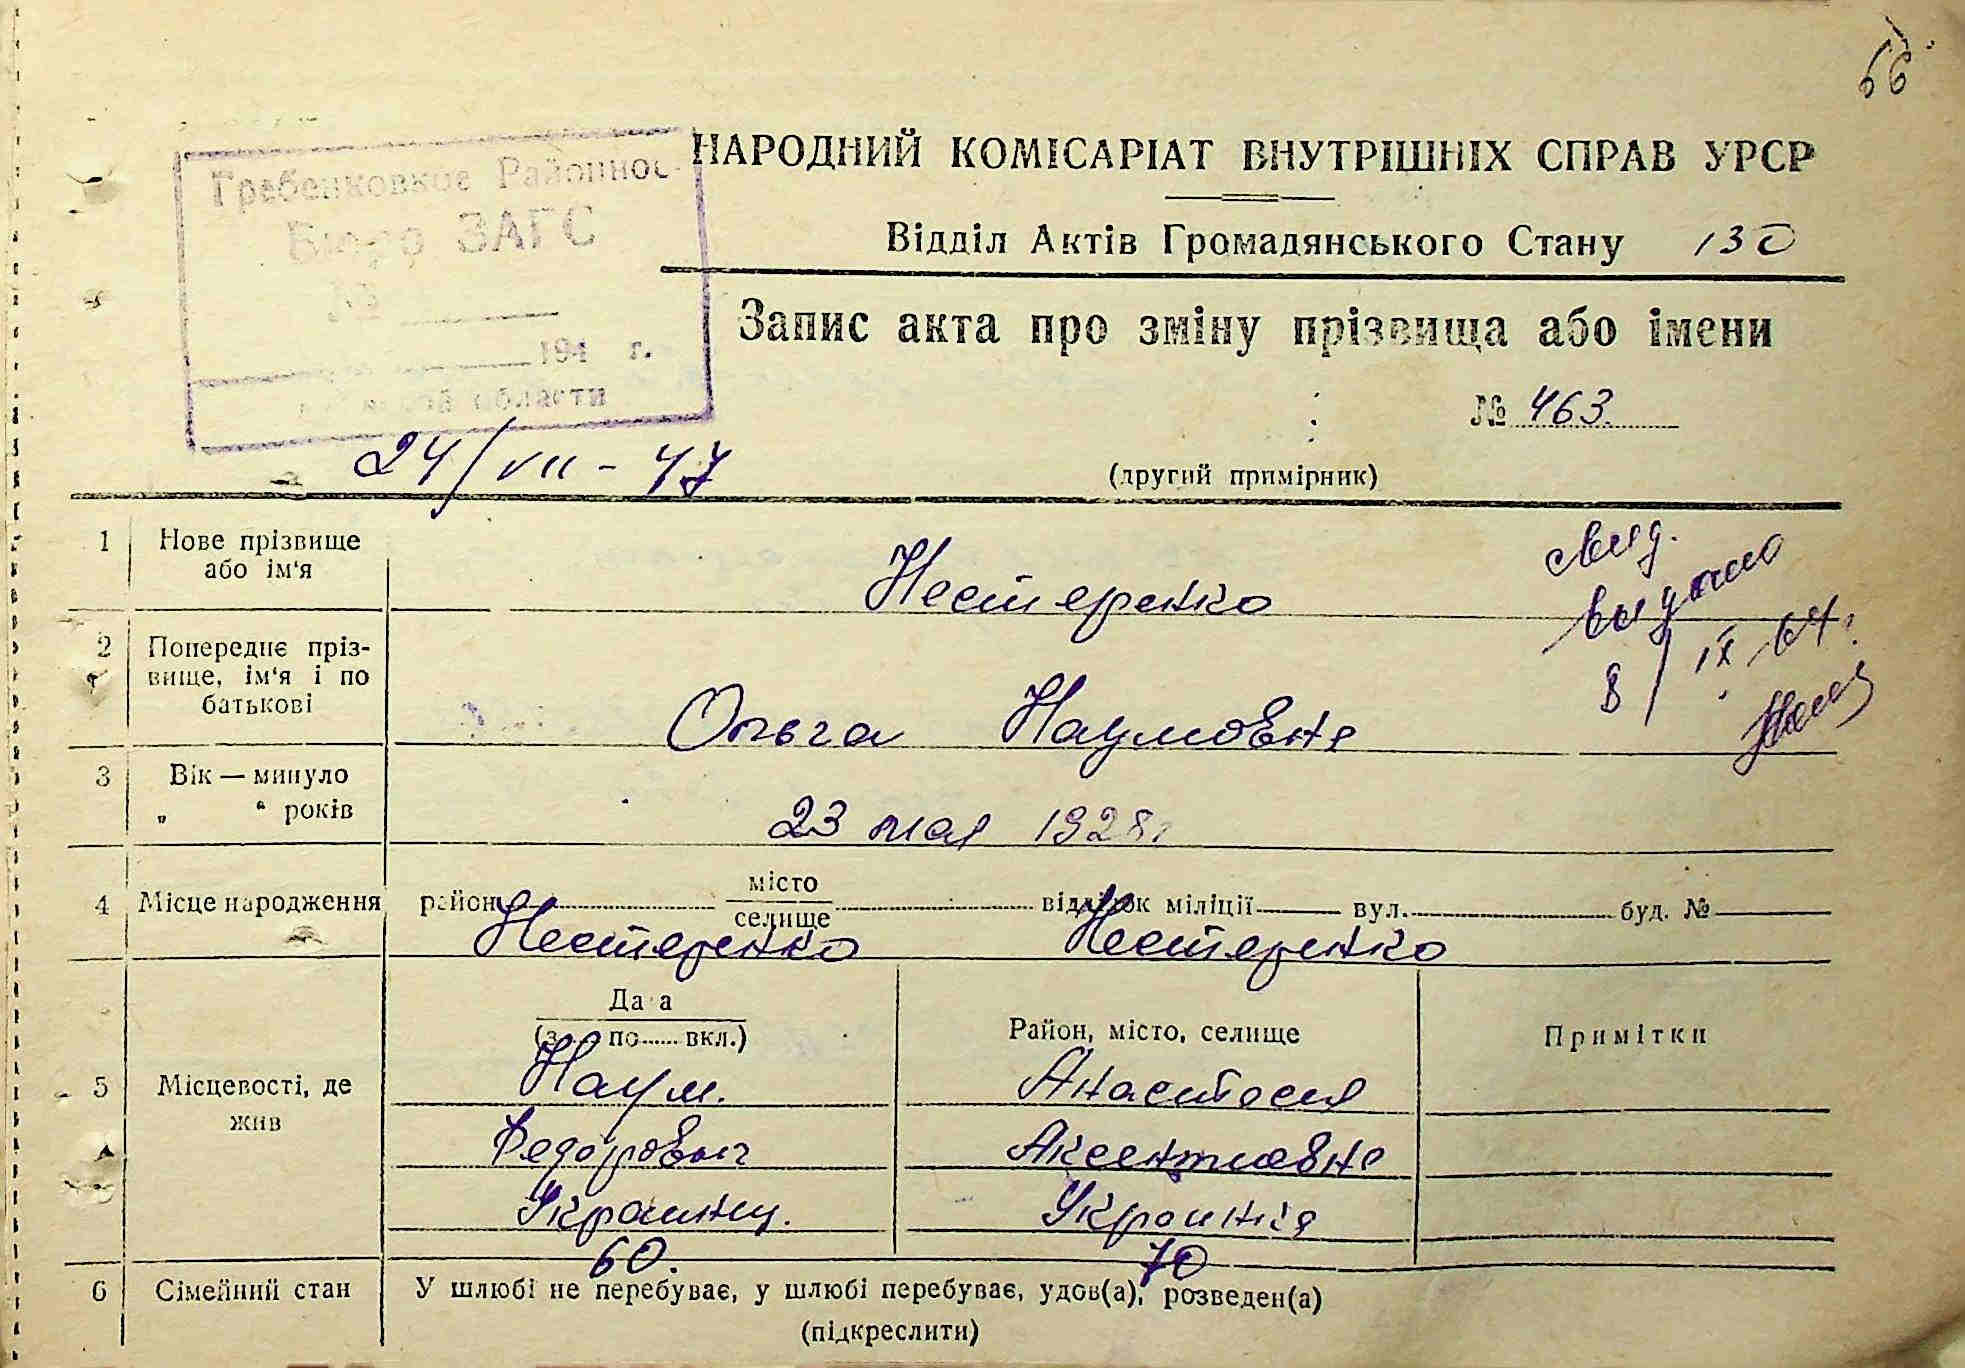 66
НАРОДНИЙ КОМІСАРІАТ ВНУТРІШНІХ СПРАВ УРСР
Гребенковское Районное
Бюро ЗАГС
№
194 г.
области
Відділ Актів Громадянського Стану 130
Запис акта про зміну прізвища або імени
№ 463.
24/VII - 47
(другий примірник)
1 Нове прізвище або ім'я
Нестеренко
свид.
выдано
8/IX 64 г.
2 Попереднє прізвище, ім'я і по батькові
Ольга Наумовна
3 Вік — минуло
„ “ років
23 мая 1928 г.
4 Місце народження район місто селище відділок міліції вул. буд. №
Нестеренко Нестеренко
5 Місцевості, де жив
Дата (з по вкл.) Район, місто, селище Примітки
Наум. Анастасия
Федорович Аксентиевна
Украинец. Украинка
60. 70
6 Сімейний стан У шлюбі не перебуває, у шлюбі перебуває, удов(а), розведен(а)
(підкреслити)